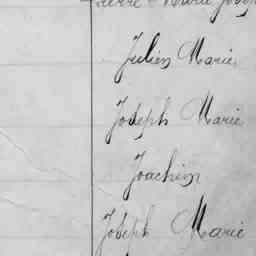 Pierre Marie Joseph
Julien Marie
Joseph Marie
Joachim
Joseph Marie